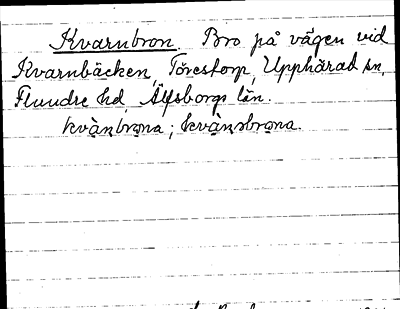 Kvarnbron. Bro på vägen vid
Kvarnbäcken, Torestorp, Upphärad sn,
Flundre hd Älvsborgs län.
kvạ̀nbrơna; kvạ̀nsbrơna.